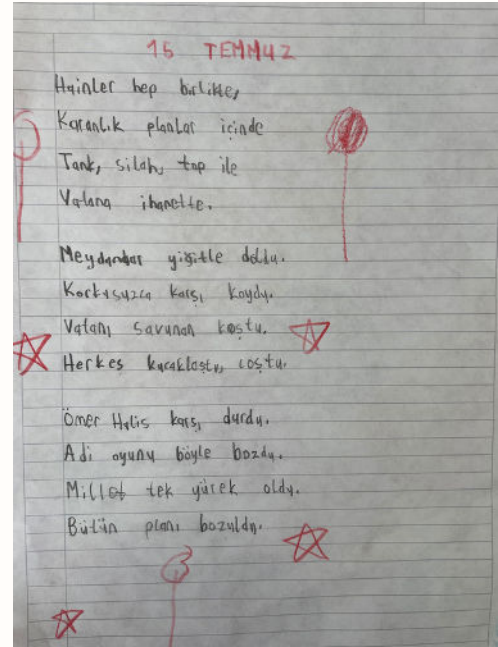 15 TEMMUZ
Hainler hep birlikte,
Karanlık planlar içinde
Tank, silah, top ile
Vatana ihanette.
Meydanlar yiğitle doldu.
Korkusuzca karşı koydu.
Vatanı savunan koştu.
Herkes kucaklaştı, coştu.
Ömer Halis karşı durdu.
Adi oyunu böyle bozdu.
Millet tek yürek oldu.
Bütün planı bozuldu.